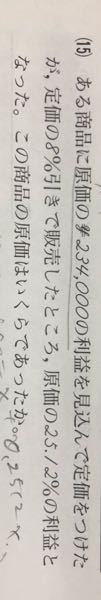 (15) ある商品に原価の¥234,000の利益を見込んで定価をつけた
が，定価の8%引きで販売したところ，原価の25.12%の利益と
なった。この商品の原価はいくらであったか。